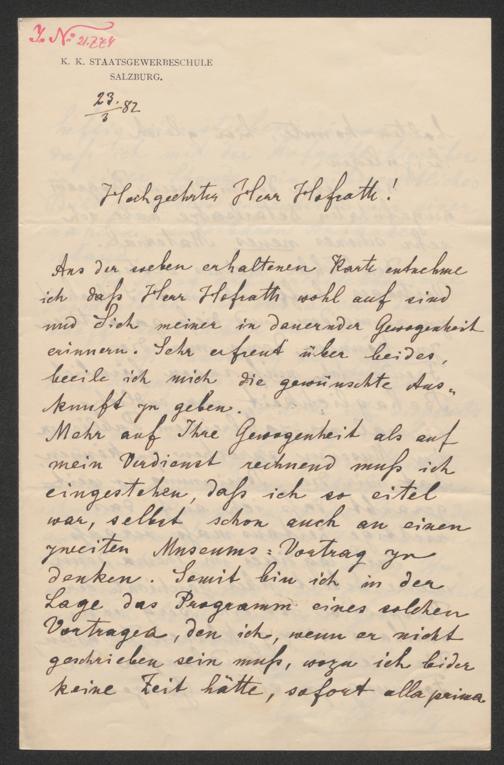 J. N: 21.774
K. K. STAATSGEWERBESCHULE
SALZBURG.
23./3 82
Hochgeehrter Herr Hofrath!
Aus der soeben erhaltenen Karte entnehme
ich daß Herr Hofrath wohl auf sind
und Sich meiner in dauernder Gewogenheit
erinnern. Sehr erfreut über beides,
beeile ich mich die gewünschte Aus-
kunft zu geben.
Mehr auf Ihre Gewogenheit als auf
mein Verdienst rechnend muß ich
eingestehen, daß ich so eitel
war, selbst schon auch an einen
zweiten Museums-Vortrag zu
denken. Somit bin ich in der
Lage das Programm eines solchen
Vortrages, den ich, wenn er nicht
geschrieben sein muß, wozu ich leider
keine Zeit hätte, sofort alla prima